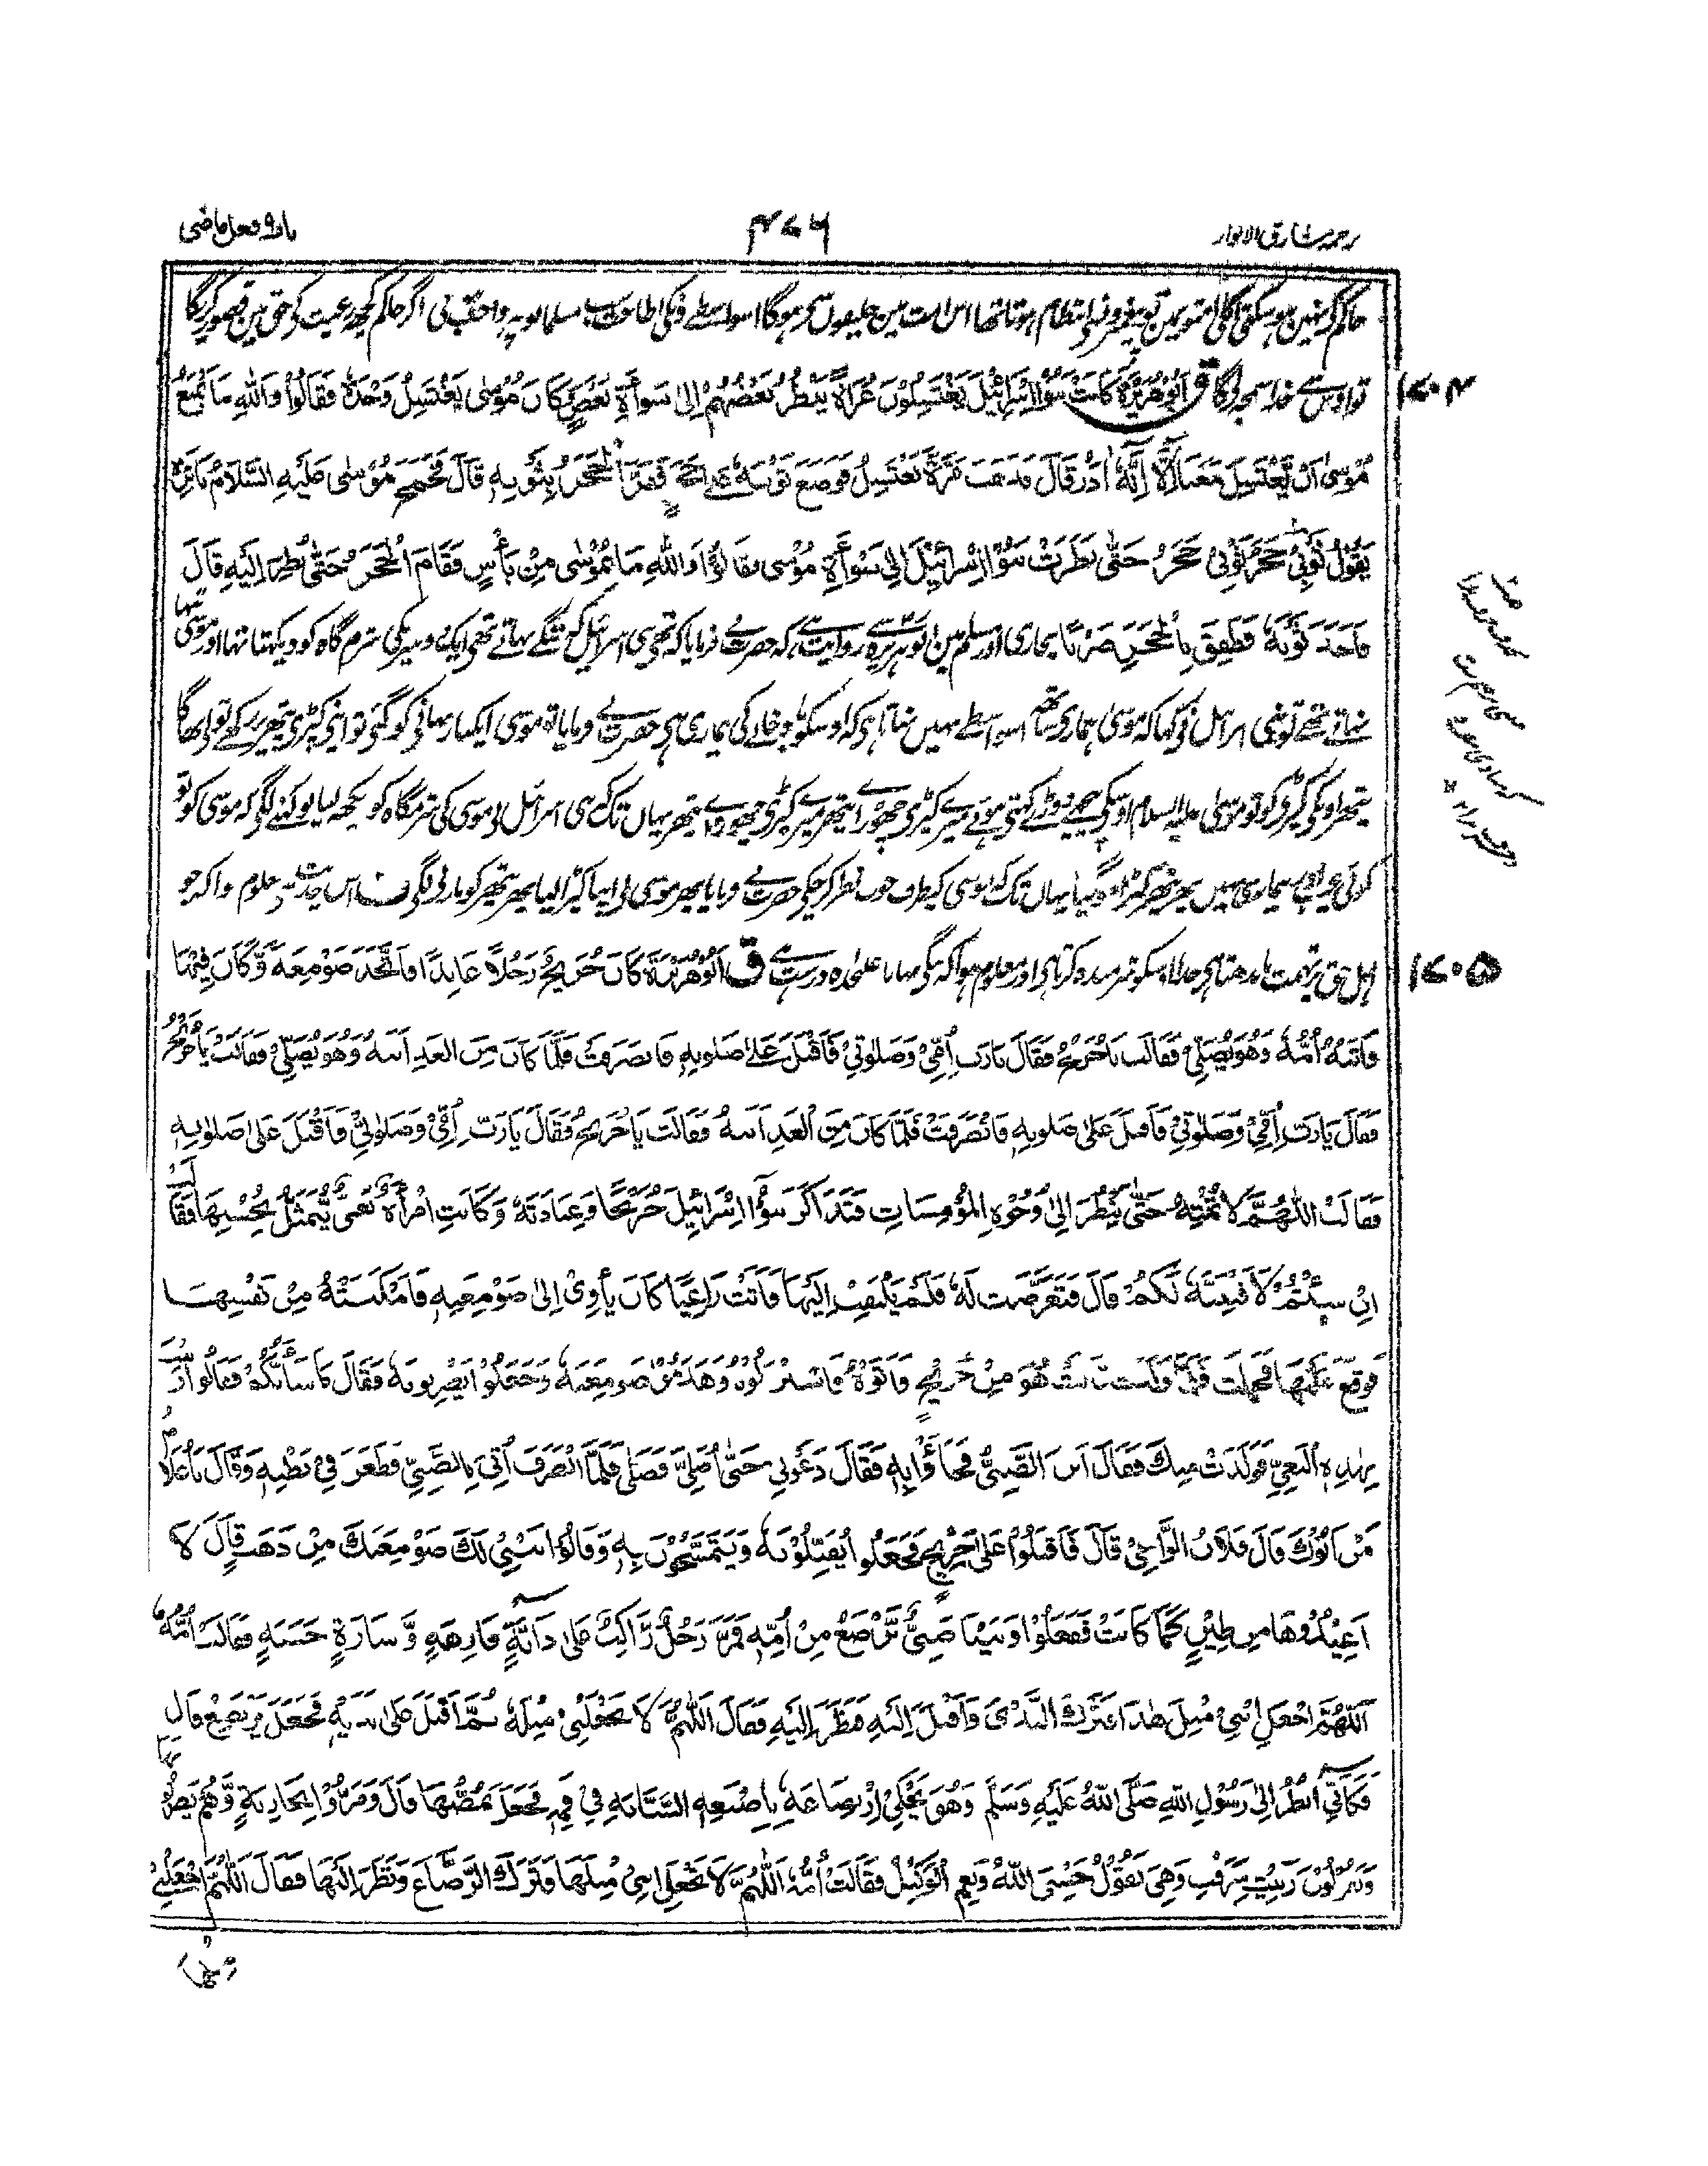 ترجمہ مشارق الانوار
۴۷۶
باب۹ فعل ماضی
حاکم کے نہین ہو سکتی اگلی امتو نمین تو پیغمبرونسے انتظام ہوتا تھا اس امت مین خلیفون سے ہوگا اسواسطے اونکی اطاعت سب مسلمانونپر واجب ہی اگر حاکم کچھ رعیت کے حق مین قصور کریگا
تو اوس سے خدا سمجھ لیگا ق اَبُوْهُرَيْرَةَ كَانَتْ بَنُوْا اِسْرَائِيْلَ يَغْتَسِلُوْنَ عُرَاةً يَنْظُرُ بَعْضُهُمْ اِلٰى سَوْأَةِ بَعْضٍ وَكَانَ مُوْسٰى يَغْتَسِلُ وَحْدَهٗ فَقَالُوْا وَاللّٰهِ مَا يَمْنَعُ
۱۷۰۴
مُوْسٰى اَنْ يَّغْتَسِلَ مَعَنَا اِلَّا اِنَّهٗ اٰدَرُ قَالَ فَذَهَبَ مَرَّةً يَغْتَسِلُ فَوَضَعَ ثَوْبَهٗ عَلٰى حَجَرٍ فَفَرَّ الْحَجَرُ بِثَوْبِهٖ قَالَ فَجَمَحَ مُوْسٰى عَلَيْهِ السَّلَامُ بِاَثَرِهٖ
يَقُوْلُ ثَوْبِيْ حَجَرُ ثَوْبِيْ حَجَرُ حَتّٰى نَظَرَتْ بَنُوْا اِسْرَائِيْلَ اِلٰى سَوْأَةِ مُوْسٰى فَقَالُوْا وَاللّٰهِ مَا بِمُوْسٰى مِنْ بَأْسٍ فَقَامَ الْحَجَرُ حَتّٰى نُظِرَ اِلَيْهِ قَالَ
فَاَخَذَ ثَوْبَهٗ فَطَفِقَ بِالْحَجَرِ ضَرْبًا بخاری اور مسلم مین ابو ہریرہ سے روایت ہے کہ حضرت نے فرمایا کہ تھے بنی اسرائیل کے ننگے نہاتے تھے ایک دوسریکی شرم گاہ کو دیکھتا تھا اور موسی تنہا
نہاتے تھے تو بنی اسرائیل نے کہا کہ موسی ہمارے ساتھ اسواسطے نہین نہاتا ہی کہ اوسکو باد خائے کی بیماری ہی حضرت نے فرمایا تو موسی ایکبار نہانے کو گئی تو اپنی کپڑی پتھر پر رکھے تو لے بھاگا
پتھر اونکی کپڑیکو تو موسیٰ علیہ السلام اوسکے پیچھے دوڑے کہتی ہوئے میرے کپڑی چھوڑ اے پتھر میرے کپڑی چھوڑ اے پتھر یہاں تک کہ بنی اسرائیل نے موسی کی شرمگاہ کو دیکھ لیا تو کہنے لگے کہ موسی کو تو
کوئی عیب بیماری نہین پھر پتھر کھڑا ہو گیا یہاں تک کہ موسی کیطرف خوب نظر کر چکے حضرت نے فرمایا پھر موسی نے اپنا کپڑا لیا پھر پتھر کو مارنے لگے ف اس حدیث سے معلوم ہوا کہ جو
اہل حق پر تہمت باندھتا ہی خدا اوسکو شرمندہ کرتا ہی اور معلوم ہوا کہ ننگی نہانا علیحدہ درست ہے ق اَبُوْهُرَيْرَةَ كَانَ جُرَيْجٌ رَجُلًا عَابِدًا فَاتَّخَذَ صَوْمِعَةً وَّكَانَ فِيْهَا
۱۷۰۵
فَاَتَتْهُ اُمُّهٗ وَهُوَ يُصَلِّيْ فَقَالَتْ يَا جُرَيْجُ فَقَالَ يَا رَبِّ اُمِّيْ وَصَلٰوتِيْ فَاَقْبَلَ عَلٰى صَلٰوتِهٖ فَانْصَرَفَتْ فَلَمَّا كَانَ مِنَ الْغَدِ اَتَتْهُ وَهُوَ يُصَلِّيْ فَقَالَتْ يَا جُرَيْجُ
فَقَالَ يَا رَبِّ اُمِّيْ وَصَلٰوتِيْ فَاَقْبَلَ عَلٰى صَلٰوتِهٖ فَانْصَرَفَتْ فَلَمَّا كَانَ مِنَ الْغَدِ اَتَتْهُ فَقَالَتْ يَا جُرَيْجُ فَقَالَ يَا رَبِّ اُمِّيْ وَصَلٰوتِيْ فَاَقْبَلَ عَلٰى صَلٰوتِهٖ
فَقَالَتْ اَللّٰهُمَّ لَا تُمِتْهُ حَتّٰى يَنْظُرَ اِلٰى وُجُوْهِ الْمُوْمِسَاتِ فَتَذَاكَرَ بَنُوْا اِسْرَائِيْلَ جُرَيْجًا وَعِبَادَتَهٗ وَكَانَتِ امْرَأَةٌ بَغِيٌّ يُّتَمَثَّلُ بِحُسْنِهَا فَقَالَتْ
اِنْ شِئْتُمْ لَاَفْتِنَنَّهٗ لَكُمْ قَالَ فَتَعَرَّضَتْ لَهٗ فَلَمْ يَلْتَفِتْ اِلَيْهَا فَاَتَتْ رَاعِيًا كَانَ يَأْوِيْ اِلٰى صَوْمِعَتِهٖ فَاَمْكَنَتْهُ مِنْ نَفْسِهَا
فَوَقَعَ عَلَيْهَا فَحَمَلَتْ فَلَمَّا وَلَدَتْ قَالَتْ هُوَ مِنْ جُرَيْجٍ فَاَتَوْهُ فَاسْتَنْزَلُوْهُ وَهَدَمُوْا صَوْمِعَتَهٗ وَجَعَلُوْا يَضْرِبُوْنَهٗ فَقَالَ مَا شَأْنُكُمْ فَقَالُوْا زَنَيْتَ
بِهٰذِهِ الْبَغِيِّ فَوَلَدَتْ مِنْكَ فَقَالَ اَيْنَ الصَّبِيُّ فَجَاؤُا بِهٖ فَقَالَ دَعُوْنِيْ حَتّٰى اُصَلِّيَ فَصَلّٰى فَلَمَّا انْصَرَفَ اُتِيَ بِالصَّبِيِّ فَطَعَنَ فِيْ بَطْنِهٖ وَقَالَ يَا غُلَامُ
مَنْ اَبُوْكَ قَالَ فُلَانٌ الرَّاعِيْ قَالَ فَاَقْبَلُوْا عَلٰى جُرَيْجٍ فَجَعَلُوْا يُقَبِّلُوْنَهٗ وَيَتَمَسَّحُوْنَ بِهٖ وَقَالُوْا نَبْنِيْ لَكَ صَوْمِعَتَكَ مِنْ ذَهَبٍ قَالَ لَا
اَعِيْدُوْهَا مِنْ طِيْنٍ كَمَا كَانَتْ فَفَعَلُوْا وَبَيْنَا صَبِيٌّ يَّرْضَعُ مِنْ اُمِّهٖ فَمَرَّ رَجُلٌ رَّاكِبٌ عَلٰى دَابَّةٍ فَارِهَةٍ وَّشَارَةٍ حَسَنَةٍ فَقَالَتْ اُمُّهٗ
اَللّٰهُمَّ اجْعَلِ ابْنِيْ مِثْلَ هٰذَا فَتَرَكَ الثَّدْيَ وَاَقْبَلَ اِلَيْهِ فَنَظَرَ اِلَيْهِ فَقَالَ اَللّٰهُمَّ لَا تَجْعَلْنِيْ مِثْلَهٗ ثُمَّ اَقْبَلَ عَلٰى ثَدْيِهٖ فَجَعَلَ يَرْتَضِعُ قَالَ
فَكَاَنِّيْ اَنْظُرُ اِلٰى رَسُوْلِ اللّٰهِ صَلَّى اللّٰهُ عَلَيْهِ وَسَلَّمَ وَهُوَ يَحْكِيْ ارْتِضَاعَهٗ بِاِصْبَعِهِ السَّبَّابَةِ فِيْ فَمِهٖ فَجَعَلَ يَمُصُّهَا قَالَ وَمَرُّوْا بِجَارِيَةٍ وَّهُمْ يَضْرِبُوْنَهَا
وَيَقُوْلُوْنَ زَنَيْتِ سَرَقْتِ وَهِيَ تَقُوْلُ حَسْبِيَ اللّٰهُ وَنِعْمَ الْوَكِيْلُ فَقَالَتْ اُمُّهٗ اَللّٰهُمَّ لَا تَجْعَلِ ابْنِيْ مِثْلَهَا فَتَرَكَ الرَّضَاعَ وَنَظَرَ اِلَيْهَا فَقَالَ اَللّٰهُمَّ اجْعَلْنِيْ